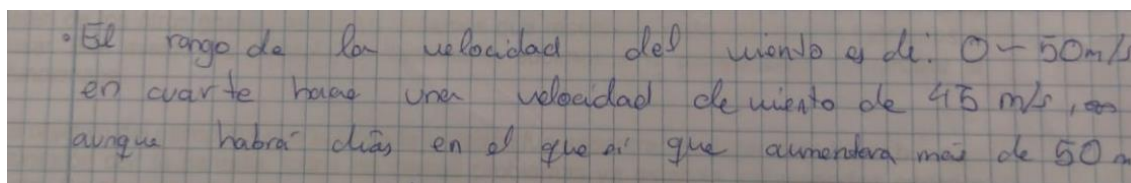 • El rango de la velocidad del viento es de: 0 – 50 m/s
en cuarte hace una velocidad de viento de 45 m/s,
aunque habrá días en el que si que aumentara más de 50 m